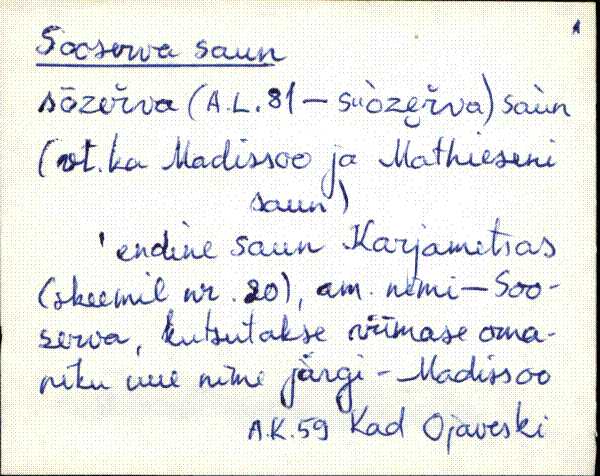 Sooserva saun
sōzeřva (A.L. 81 – suòzeřva) saùn
(vt. ka Madissoo ja Mathieseni
saun)
' endine saun Karjametsas
(skeemil nr. 20), am. nimi – Soo-
serva, kutsutakse viimase oma-
niku uue nime järgi – Madissoo
A.K. 59 Kad Ojaveski